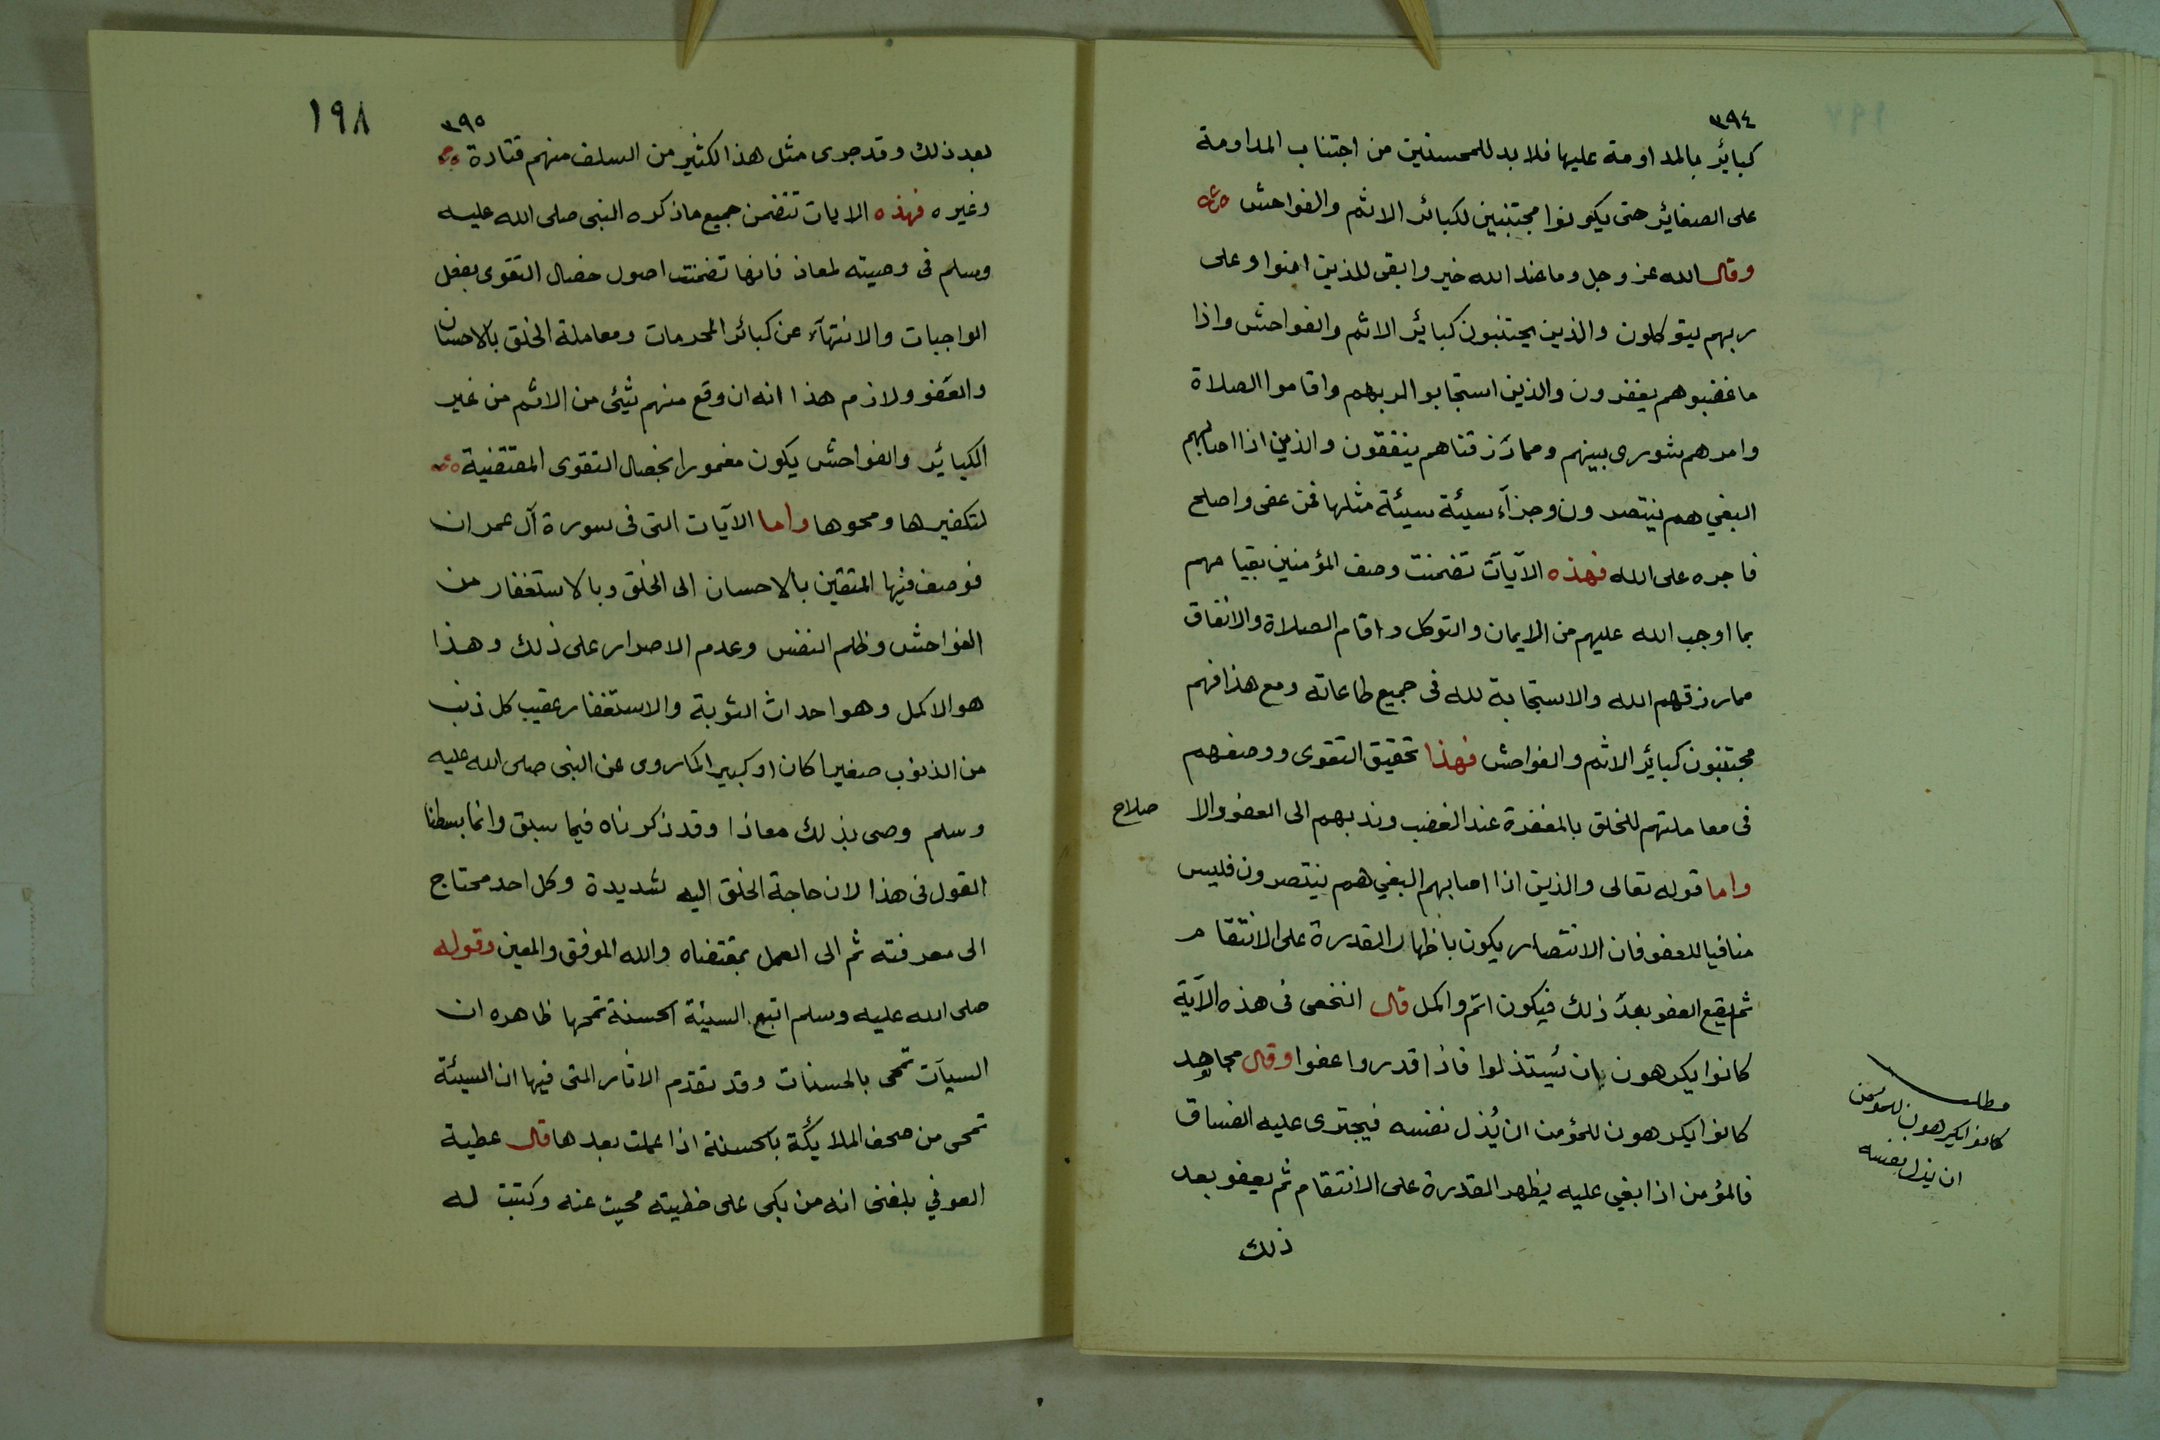 ٣٩٤
كبائر بالمداومة عليها فلا بد للمحسنين من اجتناب المداومة
على الصغائر حتى يكونوا مجتنبين لكبائر الاثم والفواحش
وقال الله عز وجل وما عند الله خير وابقى للذين امنوا وعلى
ربهم يتوكلون والذين يجتنبون كبائر الاثم والفواحش واذا
ما غضبوا هم يغفرون والذين استجابوا لربهم واقاموا الصلاة
وامرهم شورى بينهم ومما رزقناهم ينفقون والذين اذا اصابهم
البغي هم ينتصرون وجزآء سيئة سيئة مثلها فمن عفى واصلح
فاجره على الله فهذه الآيات تضمنت وصف المؤمنين بقيامهم
بما اوجب الله عليهم من الايمان والتوكل واقام الصلاة والانفاق
مما رزقهم الله والاستجابة لله فى جميع طاعاته ومع هذا فهم
مجتنبون كبائر الاثم والفواحش فهذا تحقيق التقوى ووصفهم
فى معاملتهم للخلق بالمغفرة عند الغضب وندبهم الى العفو والا صلاح
واما قوله تعالى والذين اذا اصابهم البغي هم ينتصرون فليس
منافيا للعفو فان الانتصار يكون باظهار القدرة على الانتقام
ثم يقع العفو بعد ذلك فيكون اتم واكمل قال النخعى فى هذه الآية
كانوا يكرهون ان يستذلوا فاذا قدروا عفوا وقال مجاهد
كانوا يكرهون للمؤمن ان يُذل نفسه فيجترى عليه الفساق
فالمؤمن اذا بغي عليه يظهر المقدرة على الانتقام ثم يعفو بعد
ذلك
مطلب
كانوا يكرهون للمؤمن
ان يذل نفسه
١٩٨
٣٩٥
بعد ذلك وقد جرى مثل هذا لكثير من السلف منهم قتادة
وغيره فهذه الايات تتضمن جميع ما ذكره النبى صلى الله عليه
وسلم فى وصيته لمعاذ فانها تضمنت اصول خصال التقوى بفعل
الواجبات والانتهآء عن كبائر المحرمات ومعاملة الخلق بالاحسان
والعفو ولازم هذا انه ان وقع منهم شيئ من الاثم من غير
الكبائر والفواحش يكون مغمورا بخصال التقوى المقتضية
لتكفيرها ومحوها واما الآيات التى فى سورة آل عمران
فوصف فيها المتقين بالاحسان الى الخلق وبالاستغفار من
الفواحش وظلم النفس وعدم الاصرار على ذلك وهذا
هو الاكمل وهو احداث التوبة والاستغفار عقيب كل ذنب
من الذنوب صغيرا كان او كبيرا كما روى عن النبى صلى الله عليه
وسلم وصى بذلك معاذا وقد ذكرناه فيما سبق وانما بسطنا
القول فى هذا لان حاجة الخلق اليه شديدة وكل احد محتاج
الى معرفته ثم الى العمل بمقتضاه والله الموفق والمعين وقوله
صلى الله عليه وسلم اتبع السيئة الحسنة تمحها ظاهره ان
السيآت تمحى بالحسنات وقد تقدم الاثار التى فيها ان السيئة
تمحى من صحف الملائكة بالحسنة اذا عملت بعدها قال عطية
العوفي بلغنى انه من بكى على خطيته محيت عنه وكتبت له